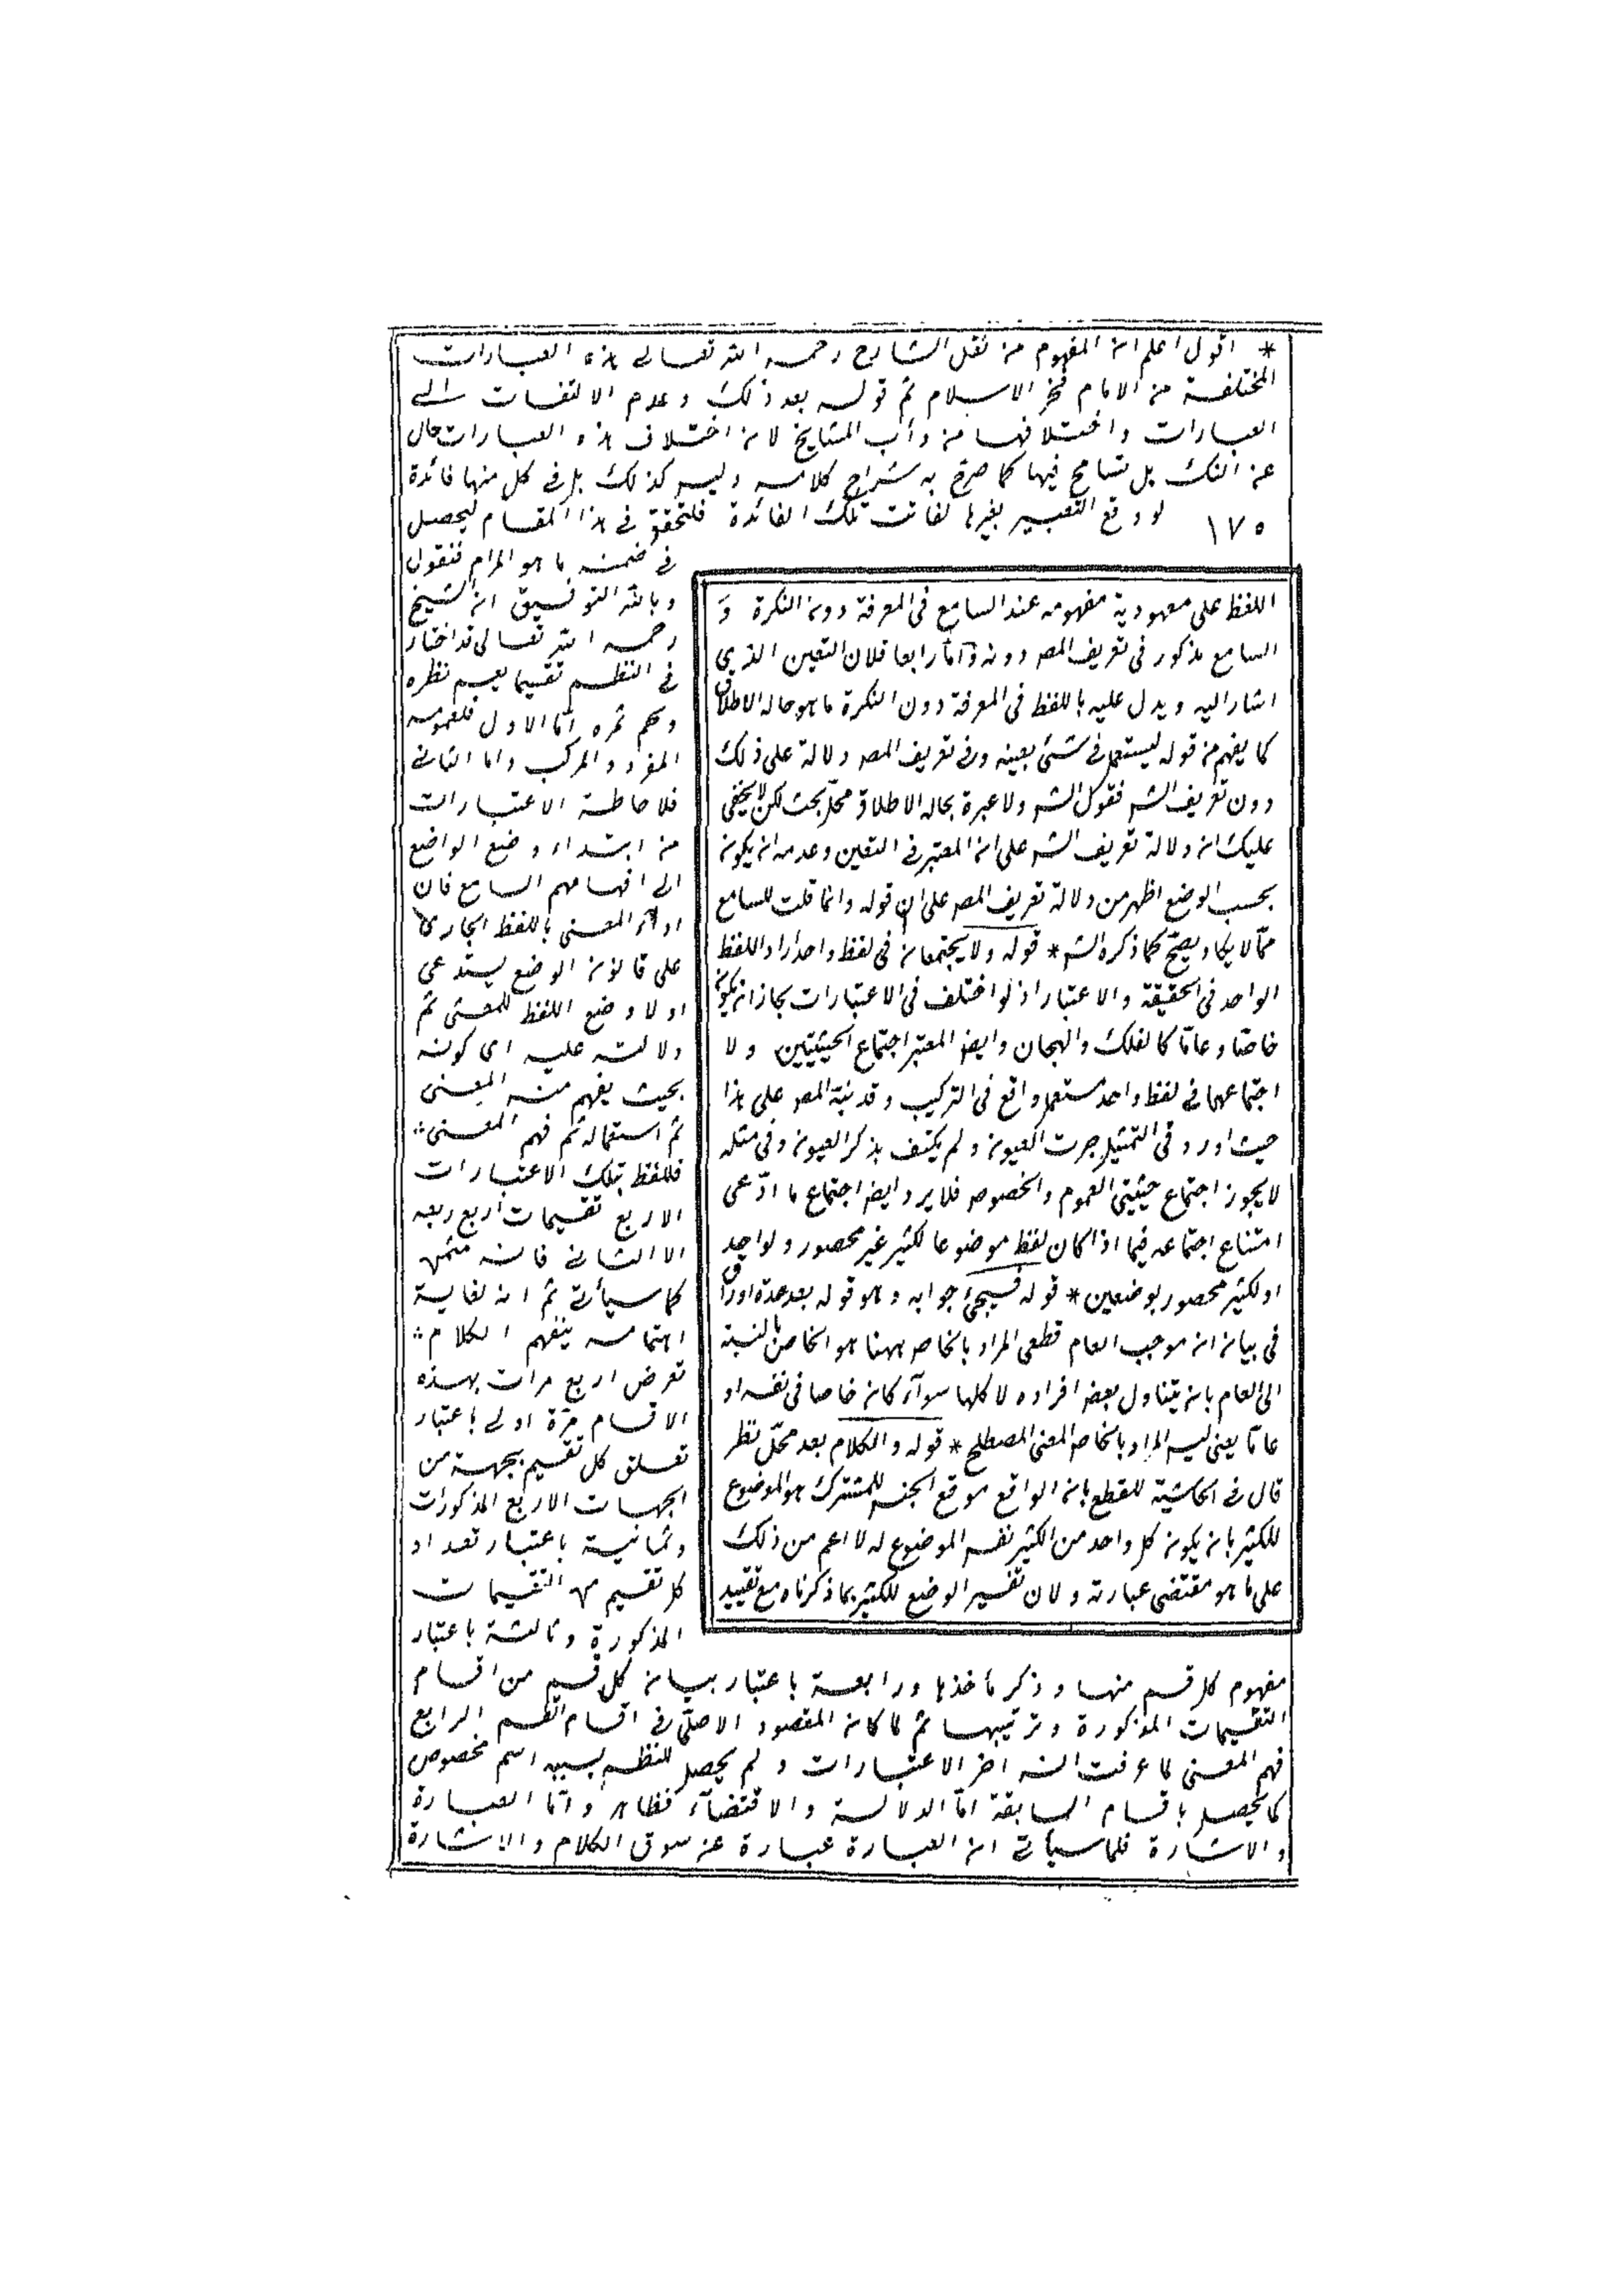 * اقول اعلم ان المفهوم من نقل الشارح رحمه الله تعالى هذه العبارات
المختلفة من الامام فخر الاسلام ثم قوله بعد ذلك وعدم الالتفات الى
العبارات واختلافها من دأب المشايخ لان اختلاف هذه العبارات خال
عن النكت بل تسامح فيها كما صرح به شراح كلامه وليس كذلك بل في كل منها فائدة
لو وقع التعبير بغيرها لفاتت تلك الفائدة فلنحقق في هذا المقام ليحصل
١٧٥
في ضمنه ما هو المرام فنقول
وبالله التوفيق ان الشيخ
رحمه الله تعالى قد اختار
في النظم تقسيما يعم نظره
وحكم ثمره امّا الاول فلعمومه
المفرد والمركب واما الثاني
فلاحاطة الاعتبارات
من ابتداء وضع الواضع
الى افهامهم السامع فان
اداء المعنى باللفظ الجارى
على قانون الوضع يستدعى
اولا وضع اللفظ للمعنى ثم
دلالته عليه اى كونه
بحيث يفهم منه المعنى
ثم استعماله ثم فهم المعنى
فللفظ بتلك الاعتبارات
الاربع تقسيمات اربع
الا الثاني فانه
كما سيأتي ثم انه لغاية
اهتمامه بتفهيم الكلام
تعرض اربع مرات بهذه
الاقسام مرّة اولى باعتبار
تعلق كل تقسيم بجهة من
الجهات الاربع المذكورات
وثانية باعتبار تعداد
كل تقسيم من التقسيمات
المذكورة وثالثة باعتبار
مفهوم كل قسم منها وذكر مأخذها ورابعة باعتبار بيان كل قسم من اقسام
التقسيمات المذكورة وترتيبها ثم لما كان المقصود الاصلى في اقسام القسم الرابع
فهم المعنى لما عرفت انه اخر الاعتبارات ولم يحصل للنظم بسببه اسم مخصوص
كما يحصل باقسام السابقة امّا الدلالة والاقتضاء فظاهر وامّا العبارة
والاشارة فلما سيأتي ان العبارة عبارة عن سوق الكلام والاشارة
اللفظ على معهودية مفهومه عند السامع في المعرفة دون النكرة وَ
السامع مذكور في تعريف المص دونه وَامّا رابعا فلان التعين الذي
اشار اليه ويدل عليه باللفظ في المعرفة دون النكرة ما هو حالة الاطلاق
كما يفهم من قوله ليستعمل في شئ بعينه وفى تعريف المص دلالة على ذلك
دون تعريف الش فقول الش ولا عبرة بحالة الاطلاق محل بحث لكن لا يخفى
عليك ان دلالة تعريف الش على ان المعتبر في التعين وعدمه ان يكون
بحسب الوضع اظهر من دلالة تعريف المص على ان قوله وانما قلت للسامع
ممّا لا يكاد يصحّ كما ذكره الش * قوله ولا يجتمعان في لفظ واحد اراد اللفظ
الواحد في الحقيقة والاعتبار اذ لو اختلف في الاعتبارات بجاز ان يكون
خاصّا وعامّا كالفلك والهجان وايضا المعتبر اجتماع الحيثيتين ولا
اجتماعهما في لفظ واحد مستعمل واقع في التركيب وقد نبّه المص على هذا
حيث اورد في التمثيل جرت العيون ولم يكتف بذكر العيون وفي مثله
لا يجوز اجتماع حيثيتى العموم والخصوص فلا يرد ايضا اجتماع ما ادّعى
امتناع اجتماعه فيما اذا كان لفظ موضوعا لكثير غير محصور ولواحد
او لكثير محصور بوضعين * قوله فسيجئ جوابه وهو قوله بعد عدة اوراق
في بيان ان موجب العام قطعى المراد بالخاص ههنا هو الخاص بالنسبة
الى العام بان يتناول بعض افراده لا كلها سواء كان خاصا في نفسه او
عامّا يعنى ليس المراد بالخاص المعنى المصطلح * قوله والكلام بعد محلّ نظر
قال في الحاشية للقطع بان الواقع موقع الجنس للمشترك هو الموضوع
للكثير بان يكون كل واحد من الكثير نفس الموضوع له لا اعم من ذلك
على ما هو مقتضى عبارته ولان تفسير الوضع للكثير بما ذكرناه مع تقييد